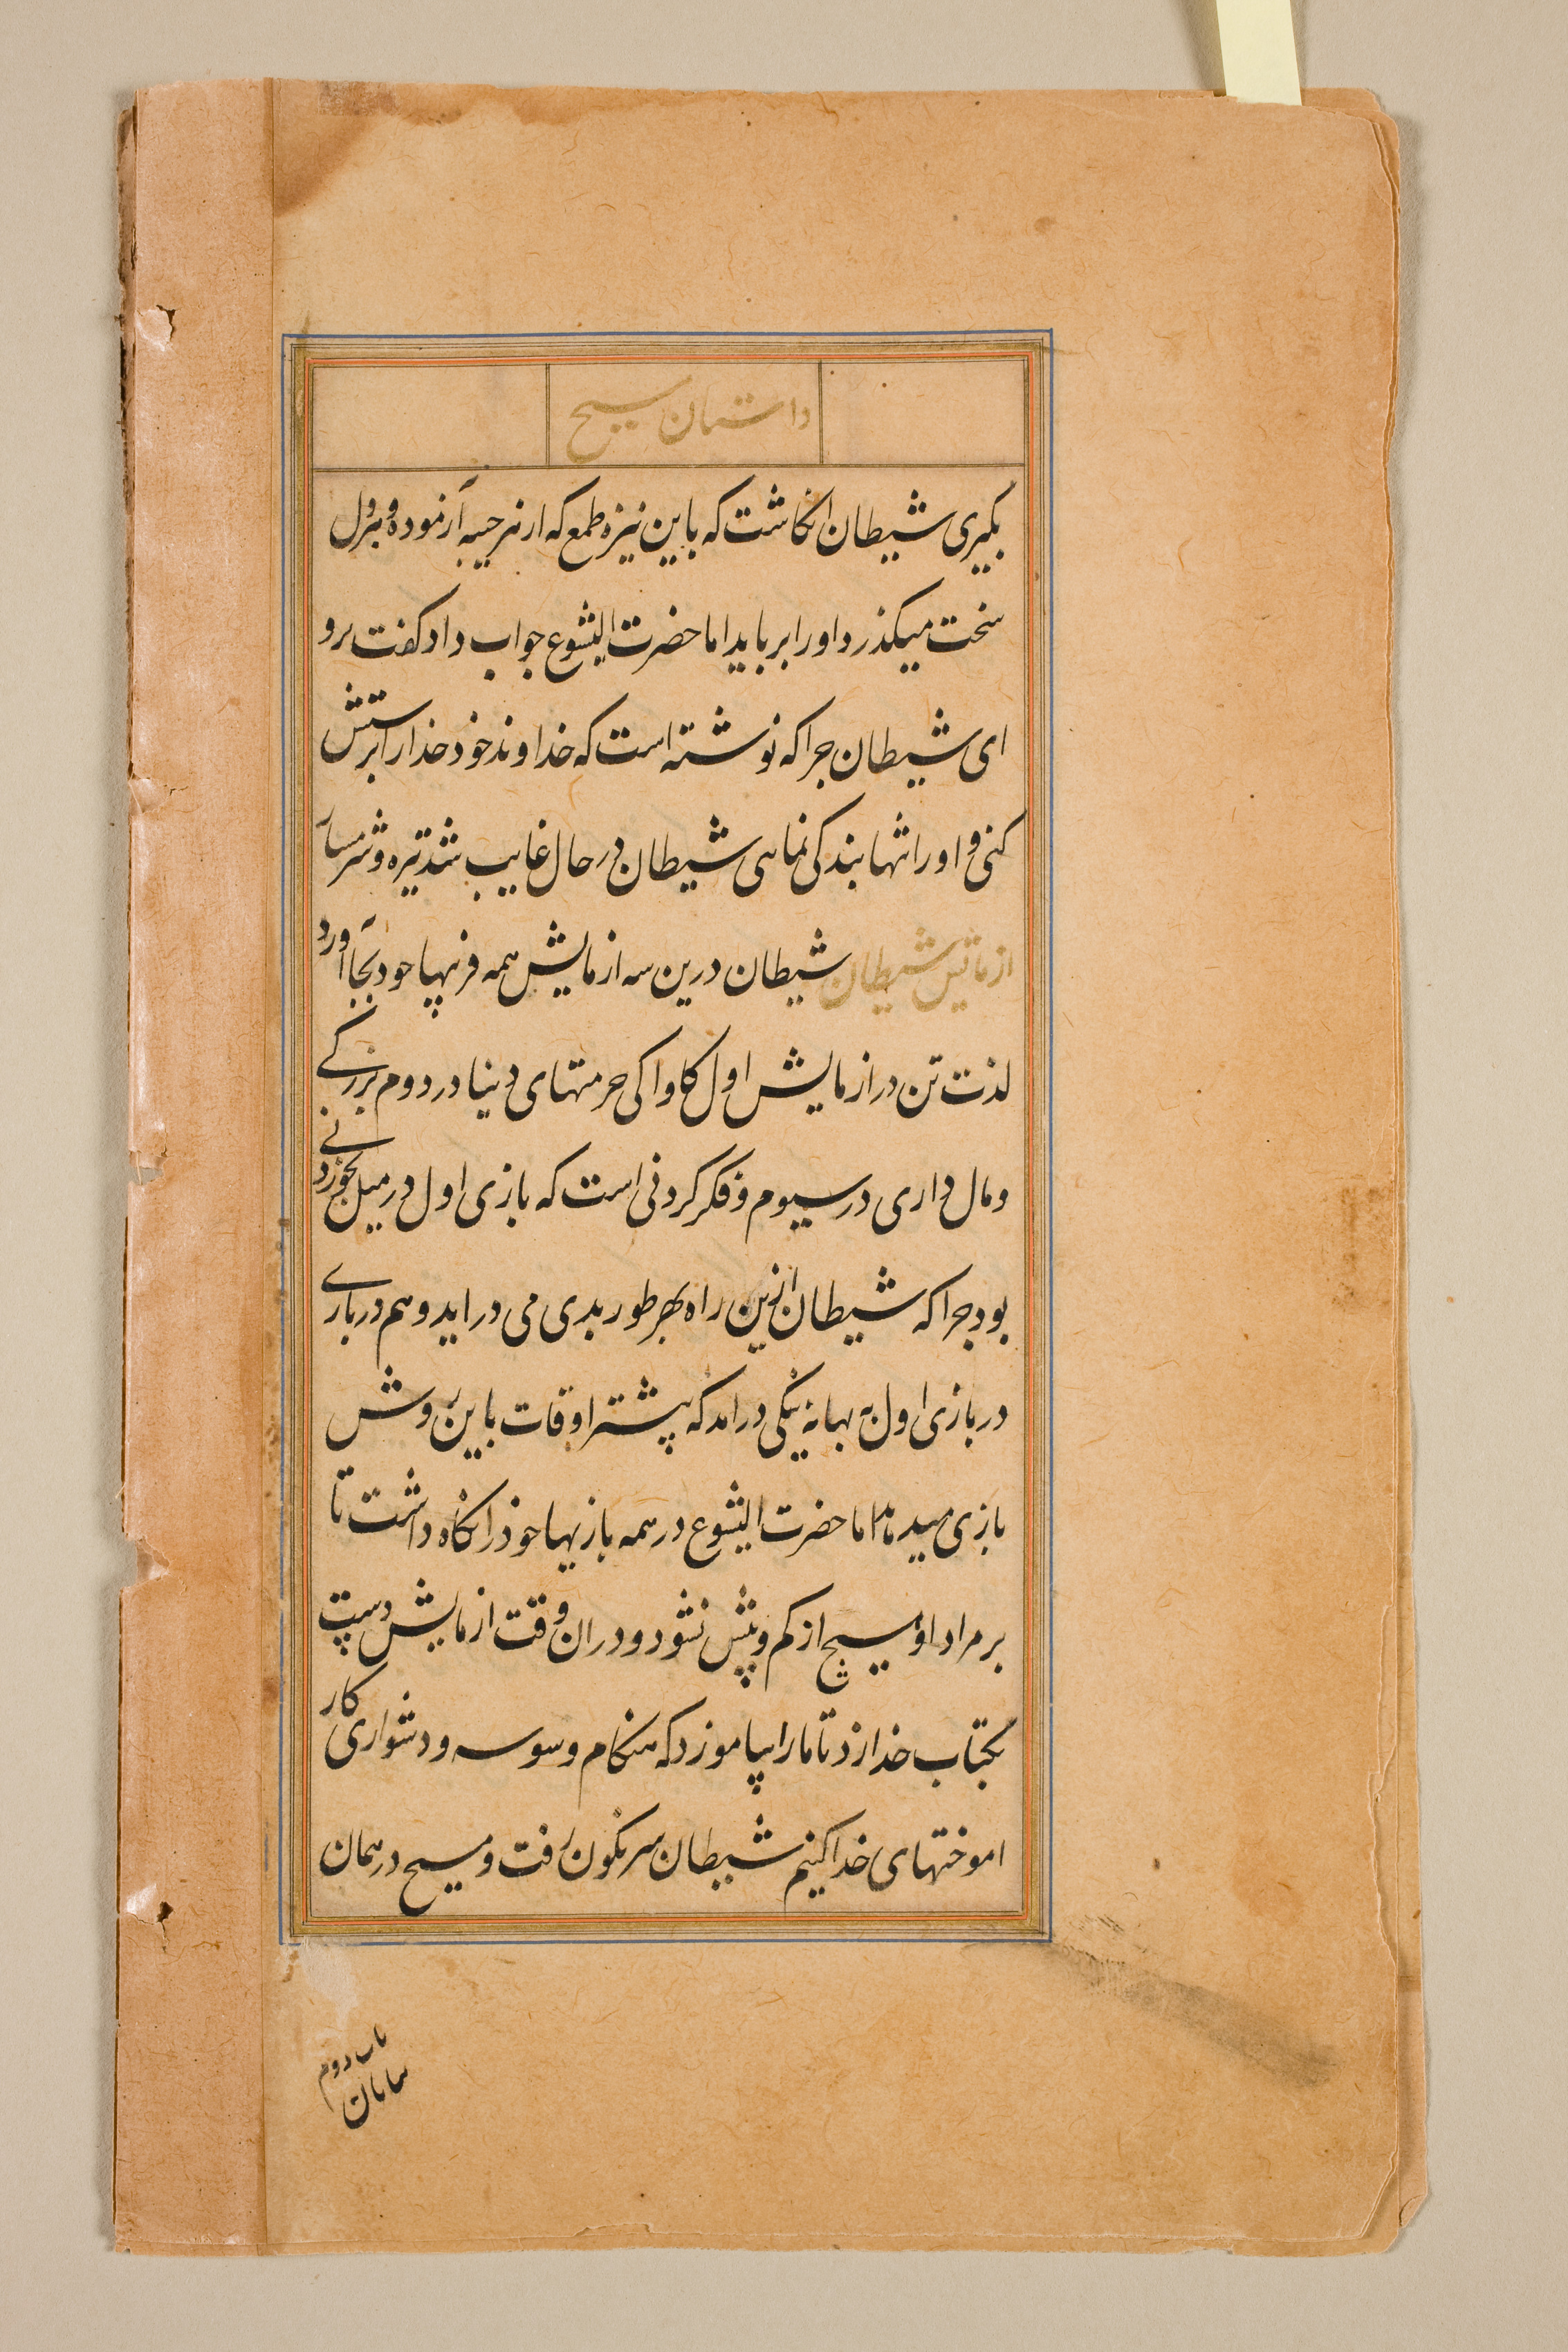 داستان مسیح
بگیری شیطان انکاشت که باین نیزه طمع که از هر چیبه آزموده و بر دل
سخت میکذرد اورا برباید اما حضرت ایشوع جواب داد کفت برو
ای شیطان چرا که نوشته است که خداوند خود خدارا پرستش
کنی و اورا تنها بندکی نمایی شیطان در حال غایب شد تیره و شرمسار
ازمایش شیطان شیطان درین سه ازمایش همه فریبها خود بجا آورد
لذت تن در ازمایش اول کاواکی حرمتهای دنیا در دوم بزرکے
و مال داری در سیوم و فکر کردنی است که بازی اول در میل بخوردنے
بود چرا که شیطان ازین راه بهر طور بدی می دراید و هم دربارے
در بازی اول به بهانه نیکی درامد که پیشتر اوقات باین روش
بازی میدهد اما حضرت ایشوع در همه بازیها خودرا نکاه داشت تا
بر مراد او هیچ از کم و بیش نشود و دران وقت ازمایش دست
بکتاب خدا زد تا مارا بیاموزد که هنکام وسوسه و دشواری کار
اموختهای خدا کنیم شیطان سرنکون رفت و مسیح در همان
باب دوم
سامان